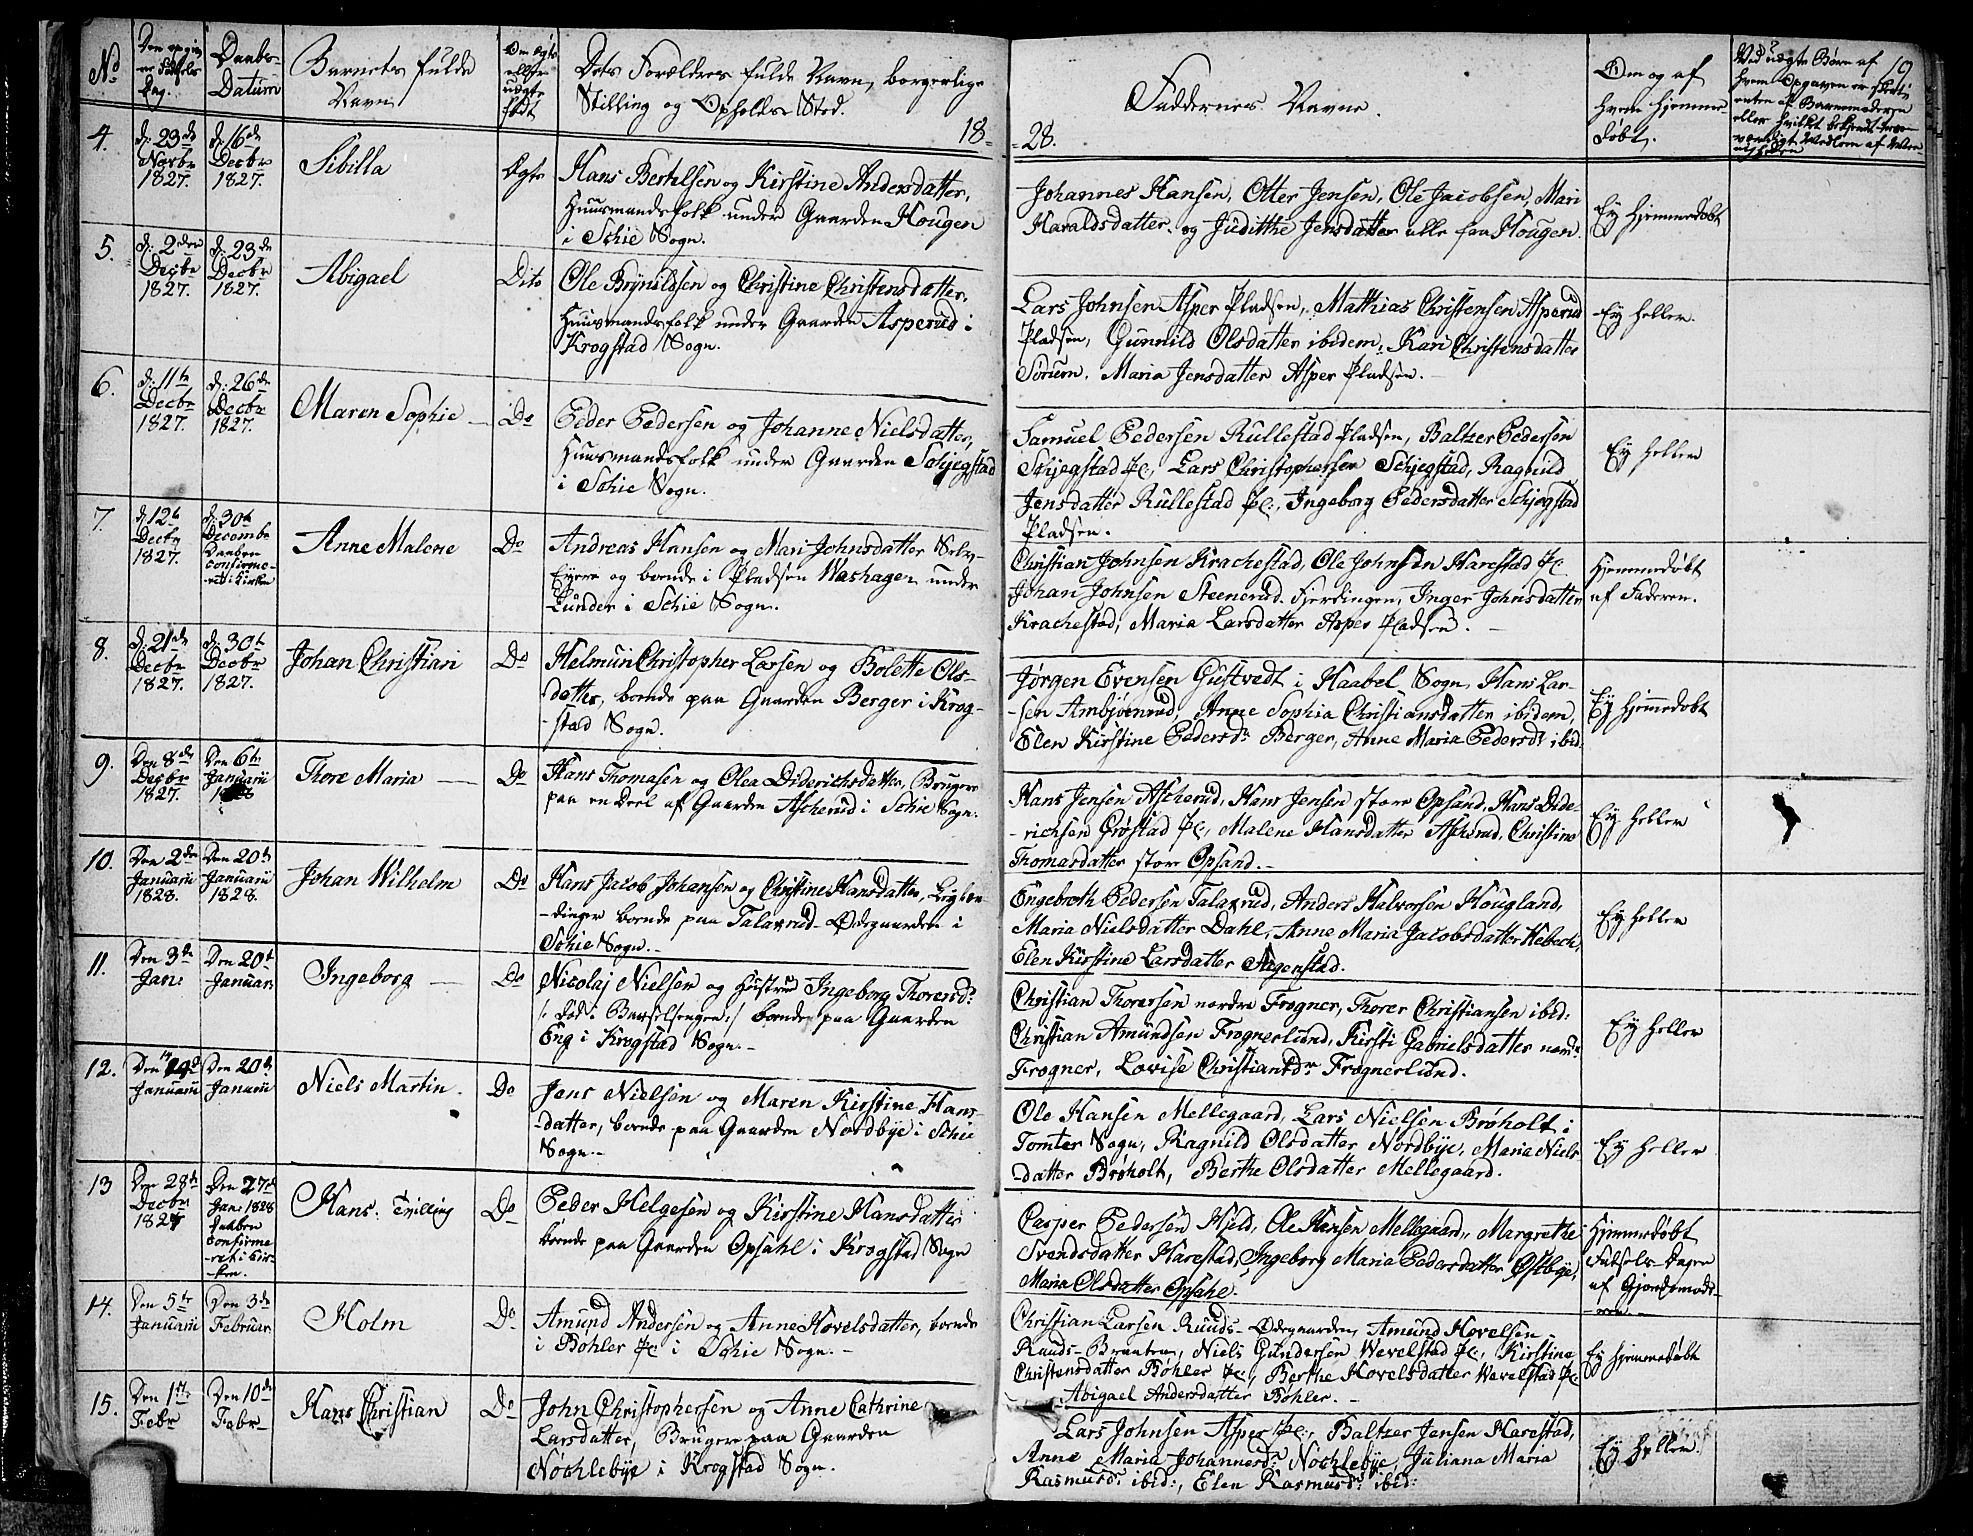 No
Den opgivne Fødsels Dag.
Daabs-Datum
Barnets fulde Navn
Om ægte eller uægte født
Dets Forældres fulde Navn, borgerlige Stilling og Opholds Sted.
18-
-28.
Faddernes Navne.
Om og af hvem hjemmedøbt.
19
4.
d: 23de Novbr 1827.
d: 16de Decbr 1827.
Sibilla
Ægte
Hans Bertelsen og Kirstine Andersdatter,
Huusmandsfolk under Gaarden Hougen
i Schie Sogn.
Johannes Hansen, Otter Jensen, Ole Jacobsen, Mari
Haraldsdatter, og Judithe Jensdatter alle fra Hougen.
Ey hjemmedøbt
5.
d: 2den Decbr 1827.
d: 23de Decbr 1827.
Abigael
Dito
Ole Brynildsen og Christine Christensdatter,
Huusmandsfolk under Gaarden Asperud i
Krogstad Sogn.
Lars Johnsen Asper Pladsen, Mathias Christensen Asperud
Pladsen, Gunnild Olsdatter ibidem, Kari Christensdatter
Sørum, Maria Jensdatter Asper Pladsen.
Ey heller.
6.
d: 11te Decbr 1827.
d: 26de Decbr 1827.
Maren Sophie
Do
Peder Pedersen og Johanne Nielsdatter,
Huusmandsfolk under Gaarden Schjegstad
i Schie Sogn.
Samuel Pedersen Rullestad Pladsen, Baltzer Pedersen
Schjegstad Pl:, Lars Christophersen Schjegstad, Ragnild
Jensdatter Rullestad Pl:, Ingeborg Pedersdatter Schjegstad
Pladsen.
Ey heller
7.
d: 12te Decbr 1827.
d: 30te Decembr Daaben confirmeret i Kirken
Anne Malene
Do
Andreas Hansen og Mari Johnsdatter Selv-
Eyere og boende i Pladsen Washagen under
Lunder i Schie Sogn.
Christian Johnsen Krachestad, Ole Johnsen Harestad Pl:
Johan Johnsen Steenerud Fjerdingen, Inger Johnsdatter
Krachestad, Maria Larsdatter Asper Pladsen.
Hjemmedøbt
af Faderen.
8.
d: 21de Decbr 1827.
d: 30te Decbr 1827.
Johan Christian
Do
Helmun Christopher Larsen og Bolette Ols-
datter, boende paa Gaarden Berger i Krog-
-stad Sogn.
Jørgen Evensen Gustvedt i Haabel Sogn, Hans Lar-
-sen Ambjørnrud, Anne Sophia Christiansdatter ibidem,
Elen Kirstine Pedersdr Berger, Anne Maria Pedersdr ibid.
Ey hjemmedøbt
9.
Den 8de Decbr 1827.
Den 6te Januarii 1828
Thore Maria
Do
Hans Thomasen og Olea Diderichsdatter, Brugere
paa en Deel af Gaarden Ascherud i Schie Sogn.
Hans Jensen Ascherud, Hans Jensen store Opsand, Hans Dide-
-richsen Grøstad Pl:, Malene Hansdatter Ascherud, Christine
Thomasdatter store Opsand.
Ey heller
10.
Den 2den Januarii 1828.
Den 20de Januarii 1828.
Johan Wilhelm
Do
Hans Jacob Johansen og Christine Hansdatter,
boende paa Talaxrud-Ødegaarden i
Schie Sogn.
Engebreth Pedersen Talaxrud, Anders Halvorsen Hougland,
Maria Nielsdatter Dahl, Anne Maria Jacobsdatter Hebech,
Elen Kirstine Larsdatter Aagenstad.
Ey heller
11.
Den 3de Jan:
Den 20de Januar:
Ingeborg
Do
Nicolaj Nielsen og Hustrue Ingeborg Thorersdr
/: død i Barselsengen :/ boende paa Gaarden
Eng i Krogstad Sogn.
Christian Thorersen nordre Frogner, Thorer Christiansen ibid:
Christian Amundsen Frognerlund, Kirsti Gabrielsdatter nord:
Frogner, Lovise Christiansdr Frognerlund.
Ey heller
12.
Januarii
Den 20de Januarii
Niels Martin.
Do
Jens Nielsen og Maren Kirstine Hans-
-datter, boende paa Gaarden Nordbye i Schie
Sogn.
Ole Hansen Mellegaard, Lars Nielsen Brøholt i
Tomter Sogn, Ragnild Olsdatter Nordbye, Maria Niels
datter Brøholt, Berthe Olsdatter Mellegaard.
Ey heller
13
Den 28de Decbr 1827
Den 27de Jan: 1828 Daaben confirmeret i Kirken.
Hans: Trilling
Do
Peder Helgesen og Kirstine Hansdatter
boende paa Gaarden Opsahl i Krogstad Sogn
Casper Pedersen Hjeld, Ole Hansen Mellegaard, Margrethe
Svendsdatter Harestad, Ingeborg Maria Pedersdatter Østbye,
Maria Olsdatter Opsahl.
Hjemmedøbt
Fødsels-Dagen
af Gjordemode-
ren.
14.
Den 5te Januarii
Den 3de Februar:
Holm
Do
Amund Andersen og Anne Hovelsdatter, boende
i Bøhler Pl: i Schie Sogn.
Christian Larsen Ruuds-Ødegaarden, Amund Hovelsen
Ruuds-Braaten, Niels Gundersen Wevelstad Pl:, Kirstine
Christensdatter Bøhler Pl:, Berthe Hovelsdatter Wevelstad Pl:
Abigael Andersdatter Bøhler.
Ey hjemmedøbt
15.
Den 1ste Febr
Den 10de Febr
Hans Christian
Do
John Christophersen og Anne Cathrine
Larsdatter, Brugere paa Gaarden
Nøchlebye i Krogstad Sogn.
Lars Johnsen Asper Pl:, Baltzer Jensen Harestad,
Anne Maria Johannesdr Nøchlebye, Juliana Maria
Rasmusdr ibid:, Elen Rasmusdr ibid:
Ey heller.